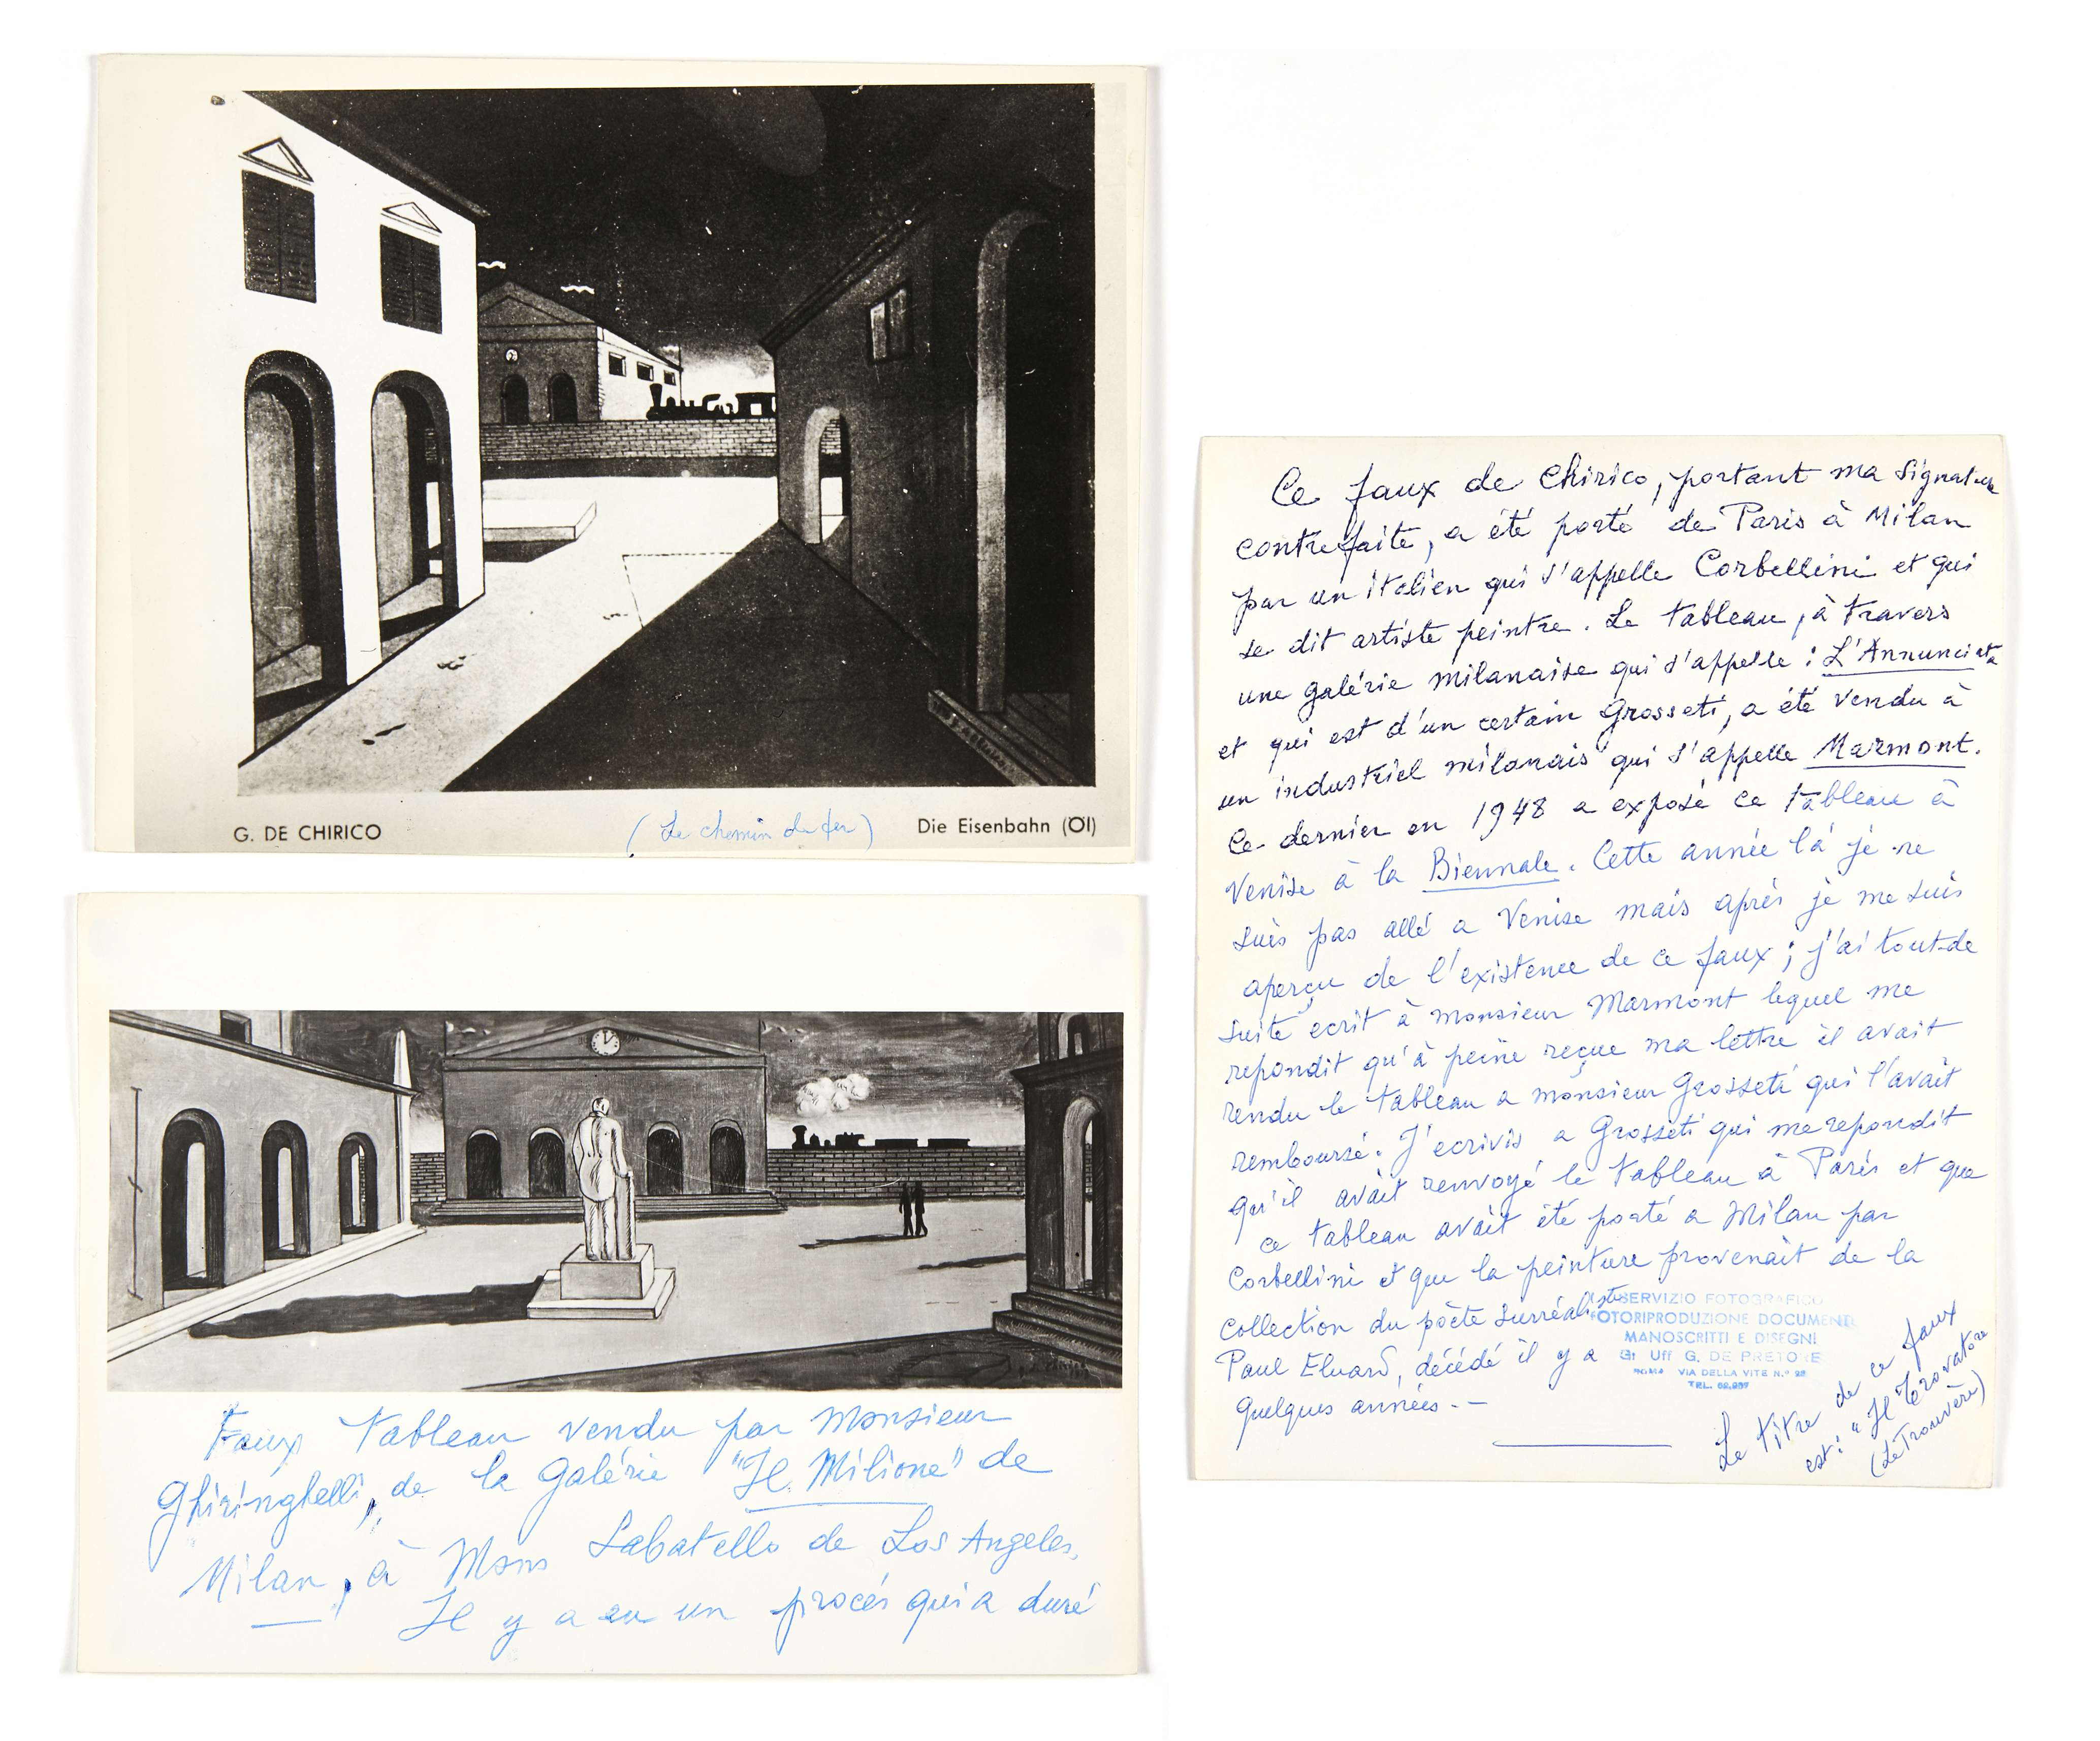 G. DE CHIRICO
(Le chemin de fer)
Die Eisenbahn (Öl)
Faux tableau vendu par Monsieur
Ghiringhelli, de la Galérie "Il Milione" de
Milan, à Mons Sabatello de Los Angeles,
Il y a eu un procés qui a duré
Ce faux de Chirico, portant ma signature
contrefaite, a été porté de Paris à Milan
par un italien qui s'appelle Corbellini et qui
se dit artiste peintre. Le tableau, à travers
une galérie milanaise qui s'appelle : L'Annunciata
et qui est d'un certain Grosseti, a été vendu à
un industriel milanais qui s'appelle Marmont.
Ce dernier en 1948 a exposé ce tableau à
Venise à la Biennale. Cette année là je ne
suis pas allé a Venise mais après je me suis
aperçu de l'existence de ce faux ; j'ai tout-de
suite ecrit à monsieur Marmont lequel me
repondit qu'à peine reçue ma lettre il avait
rendu le tableau a monsieur Grosseti qui l'avait
remboursé. J'ecrivis a Grosseti qui me repondit
qu'il avait renvoyé le tableau à Paris et que
ce tableau avait été porté a Milan par
Corbellini et que la peinture provenait de la
collection du poète surréaliste
Paul Eluard, décédé il y a
quelques années. -
SERVIZIO FOTOGRAFICO
FOTORIPRODUZIONE DOCUMENTI
MANOSCRITTI E DISEGNI
Gr Uff G. DE PRETORE
ROMA VIA DELLA VITE N.º
TEL.
Le titre de ce faux
est : "Il Trovatore
(Le Trouvère)